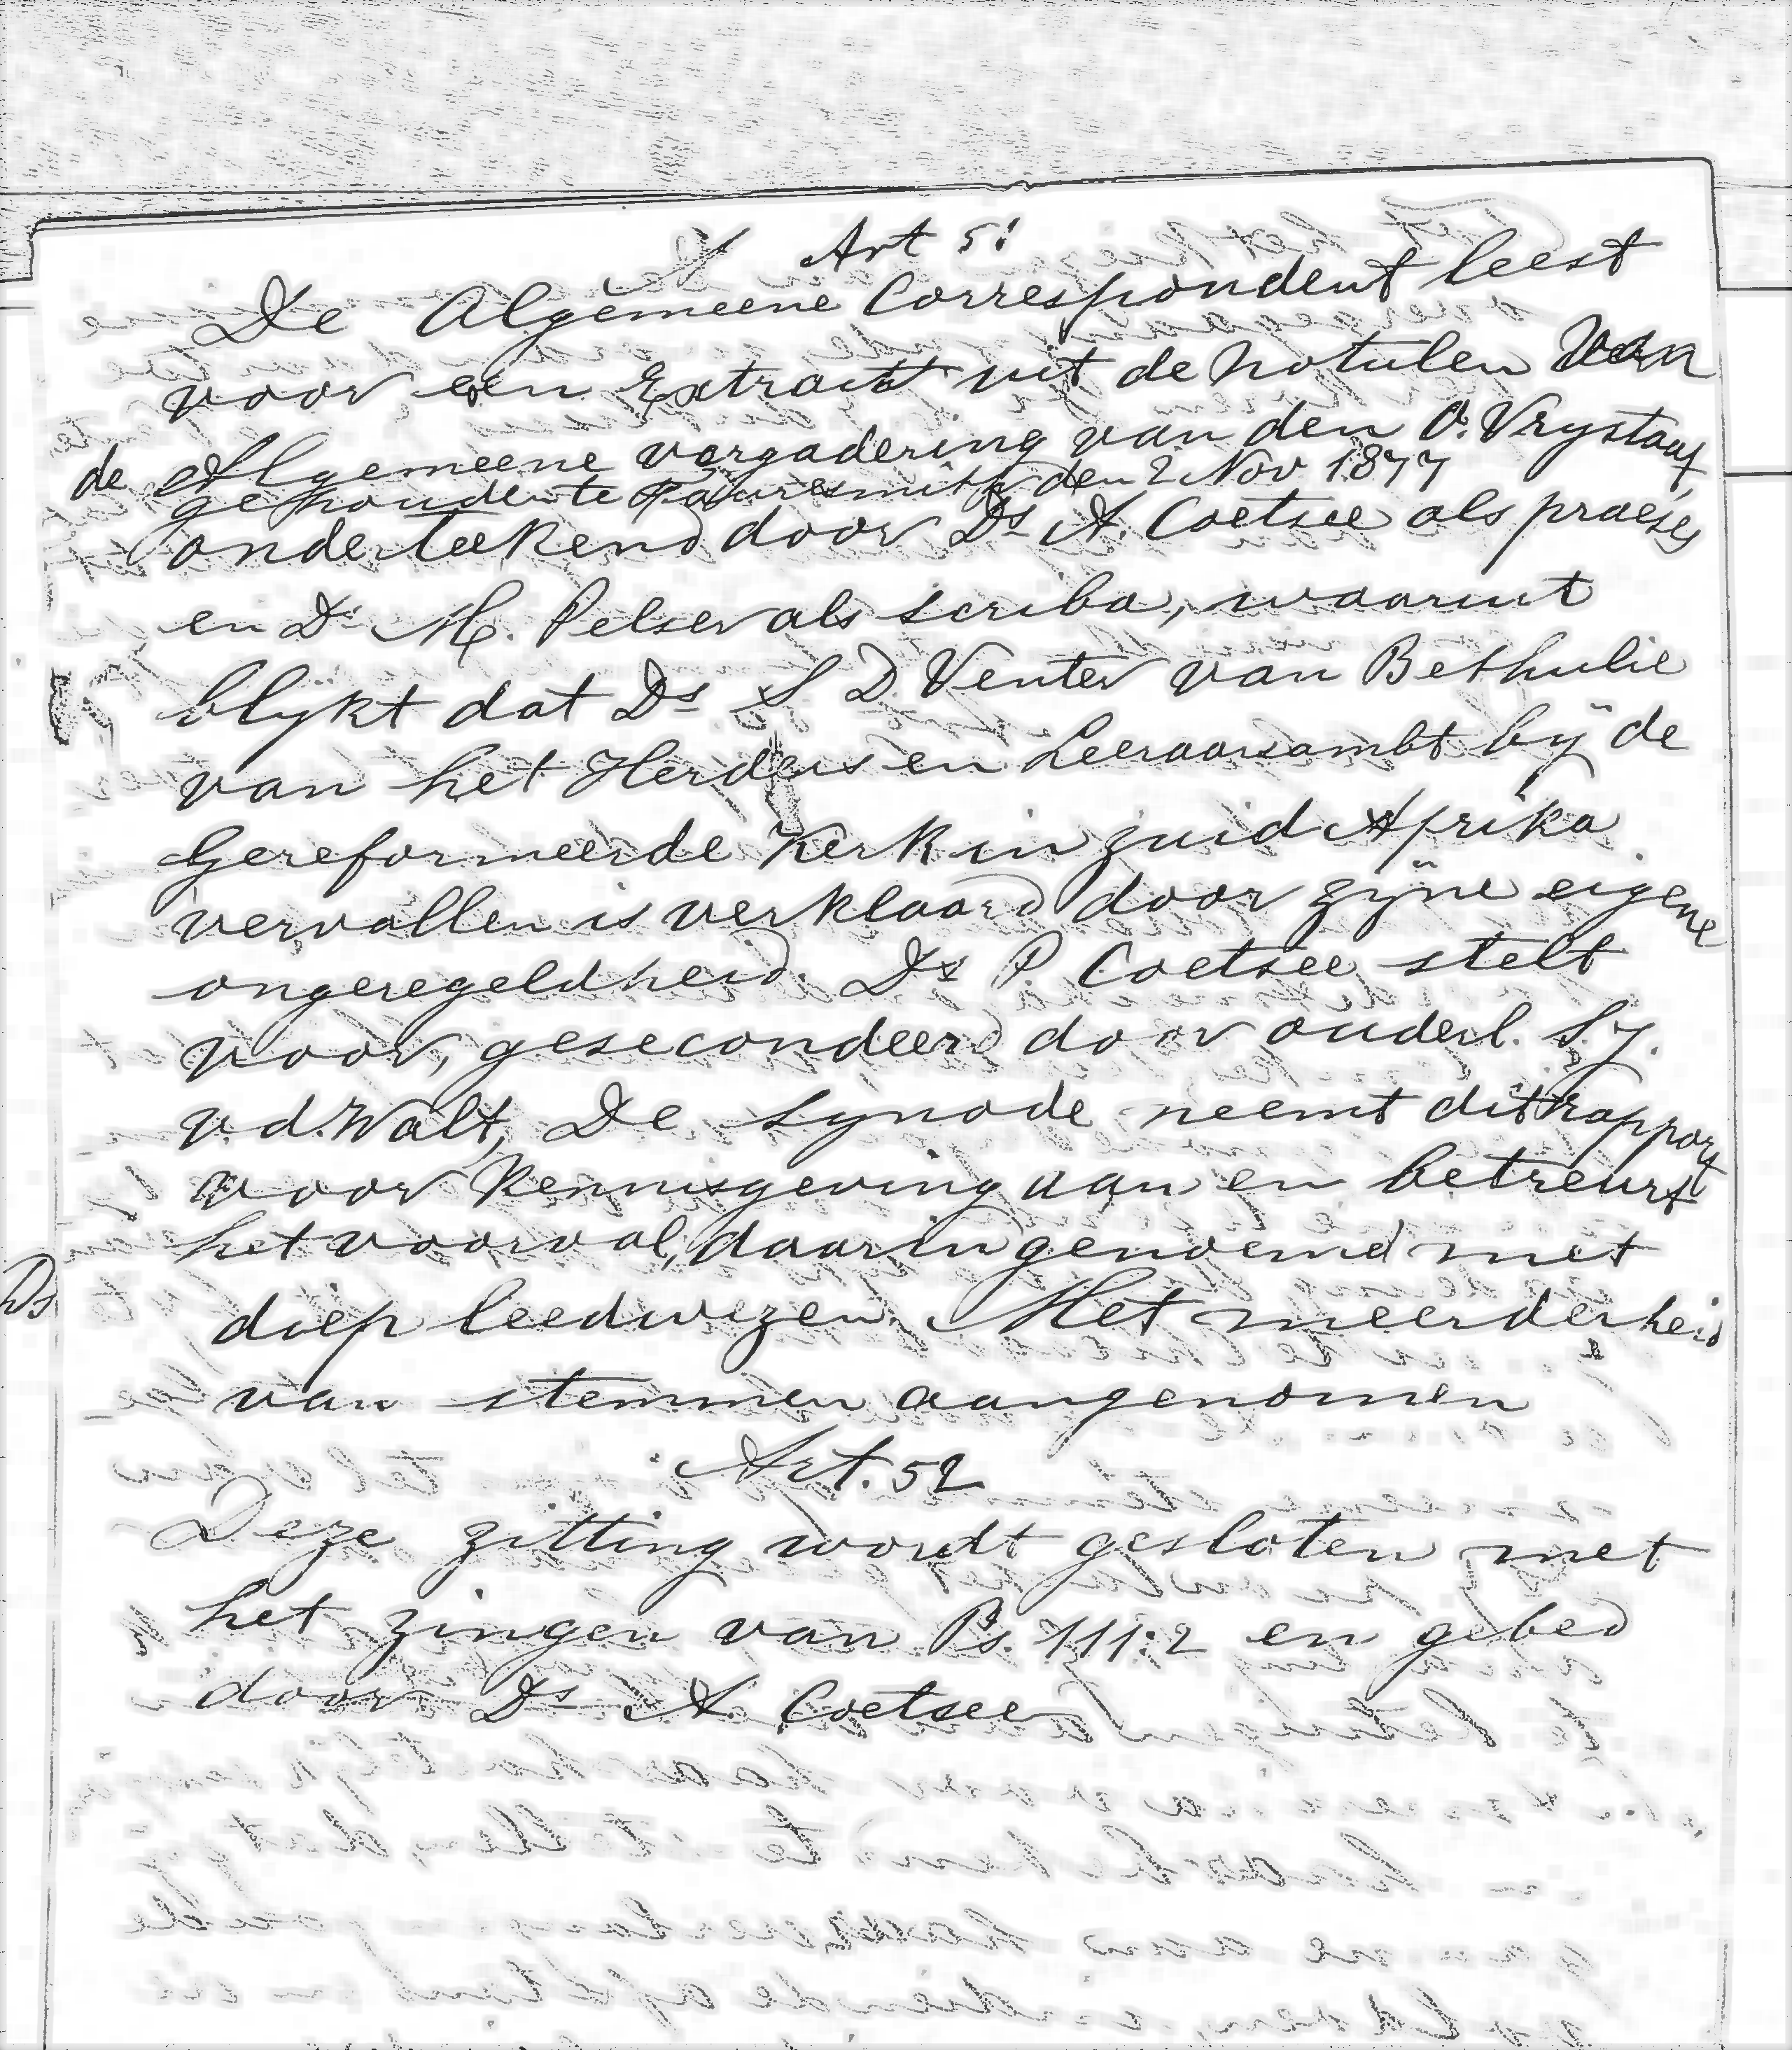 Art 51
De Algemeene Correspondent leest
voor een Extract uit de Notulen van
de Algemeene vergadering van den O. Vrystaat
gehouden te Fauresmith den 2 Nov 1877
onderteekend door Ds A. Coetsee als praeses
en Ds M. Pelser als scriba, waaruit
blykt dat Ds S D Venter van Bethulie
van het Herders en Leeraarsambt by de
Gereformeerde Kerk in zuid Afrika
vervallen is verklaard door zÿne eigene
ongeregeldheid. Ds P. Coetsee stelt
voor, gesecondeerd door ouderl. S.J.
v.d. Walt, De synode neemt dit rapport
voor kennisgeving aan en betreurt
het voorval, daarin genoemd met
diep leedwezen. Met meerderheid
van stemmen aangenomen
Art. 52
Deze zitting wordt gesloten met
het zingen van Ps. 111:2 en gebed
door Ds A. Coetsee